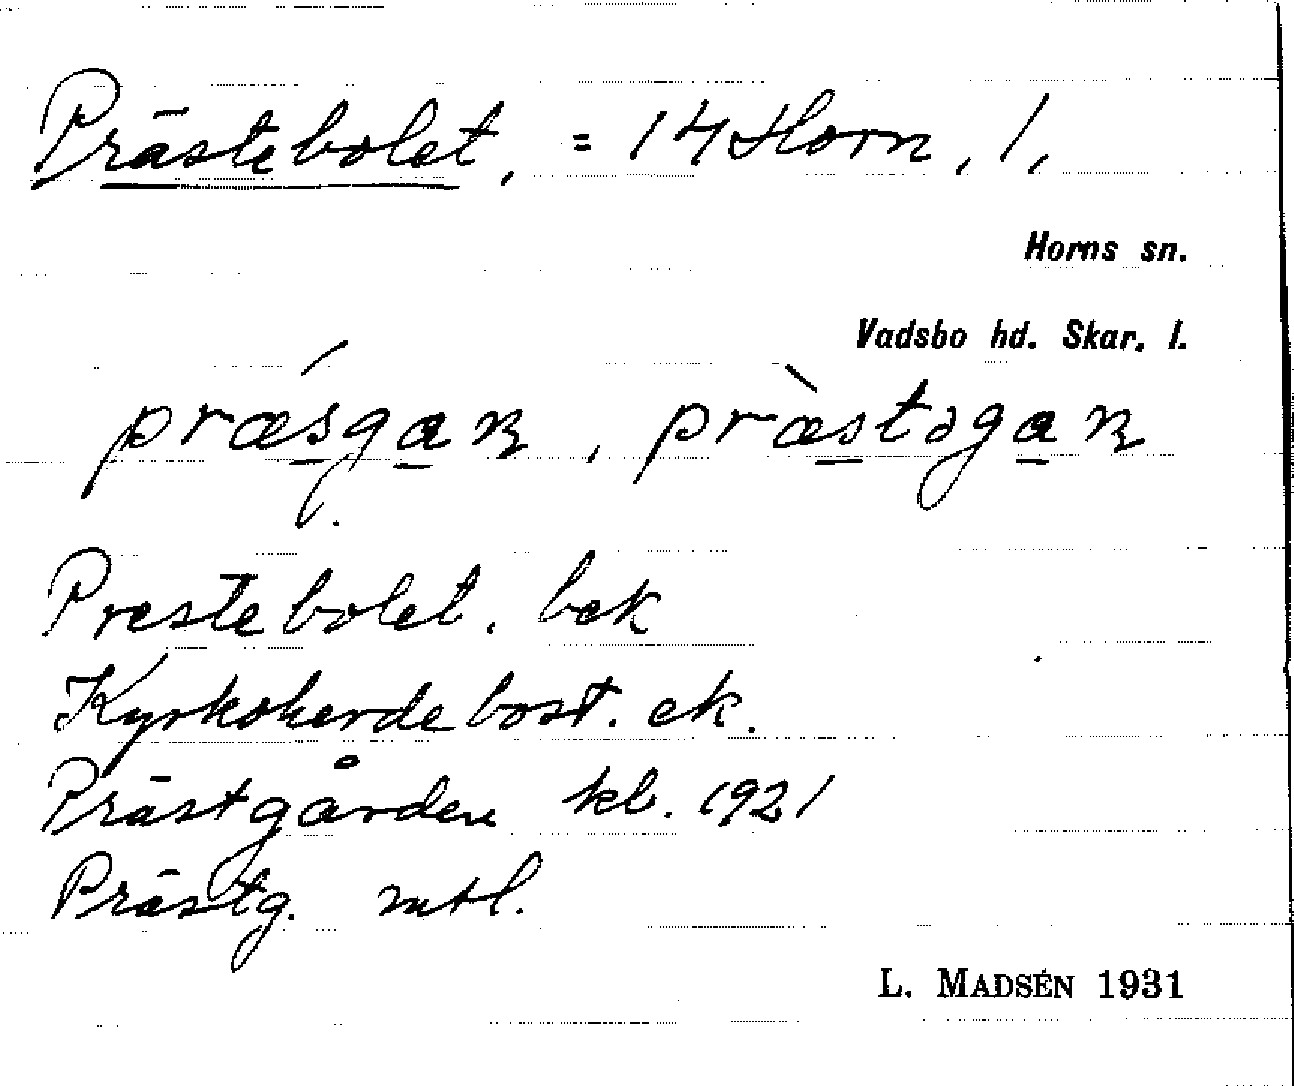 Prästebolet, = 14 Horn, 1,
Horns sn.
Vadsbo hd. Skar. l.
prǽsgaɳ, præ̀stəgaɳ
Prestebolet. bek
Kyrkoherdebost. ek.
Prästgården kb. 1921
Prästg. mtl.
L. MADSÉN 1931